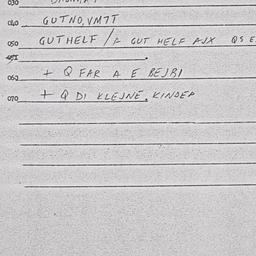 030
040 GUTNO, VM7T
050 GUTHELF / A GUT HELF AJX QS E
060 + Q FAR A E BEJBI
070 + Q DI KLEJNE. KINDER